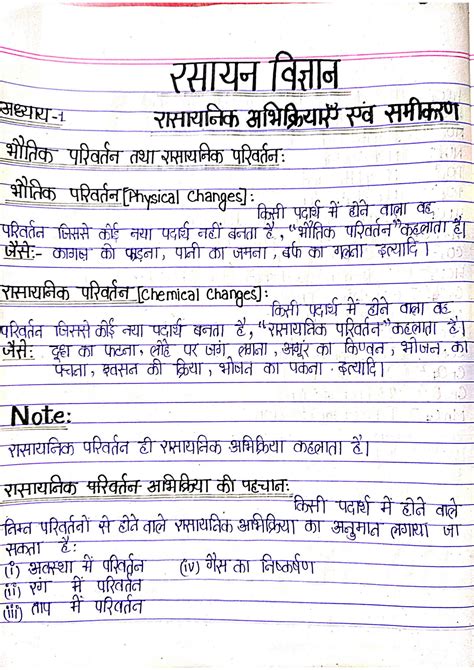 रसायन विज्ञान
अध्याय-1 रासायनिक अभिक्रियाएँ एवं समीकरण
भौतिक परिवर्तन तथा रासायनिक परिवर्तन:
भौतिक परिवर्तन [Physical Changes]:
किसी पदार्थ में होने वाला वह
परिवर्तन जिससे कोई नया पदार्थ नहीं बनता है, "भौतिक परिवर्तन" कहलाता है।
जैसे:- कागज का फाड़ना, पानी का जमना, बर्फ का गलना इत्यादि।
रासायनिक परिवर्तन [Chemical Changes]:
किसी पदार्थ में होने वाला वह
परिवर्तन जिससे कोई नया पदार्थ बनता है, "रासायनिक परिवर्तन" कहलाता है।
जैसे: दूध का फटना, लोहे पर जंग लगना, अंगूर का किण्वन, भोजन का
पचना, श्वसन की क्रिया, भोजन का पकना इत्यादि।
Note:
रासायनिक परिवर्तन ही रासायनिक अभिक्रिया कहलाता है।
रासायनिक परिवर्तन अभिक्रिया की पहचान:
किसी पदार्थ में होने वाले
निम्न परिवर्तनों से होने वाले रासायनिक अभिक्रिया का अनुमान लगाया जा
सकता है:
(i) अवस्था में परिवर्तन (iv) गैस का निष्कर्षण
(ii) रंग में परिवर्तन
(iii) ताप में परिवर्तन